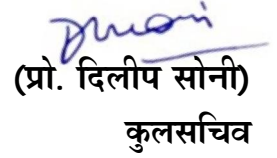 (प्रो. दिलीप सोनी)
कुलसचिव